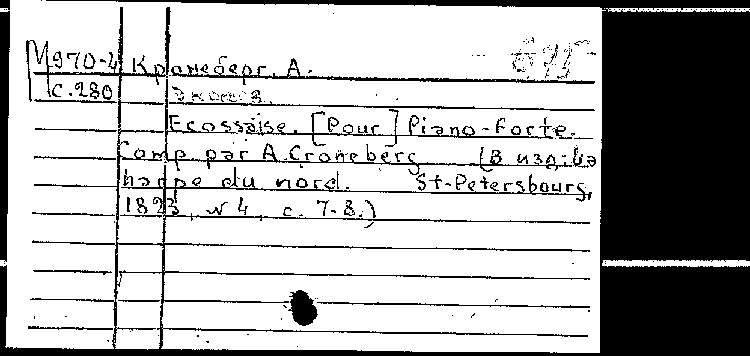 М970-4 Кронеберг, А.
с.280 Экосез.
Ecossaise. [Pour] Piano-forte.
Comp par A Croneberg (В изд: La
harpe du nord. St-Petersbourg,
1823, № 4, с. 7-8.)